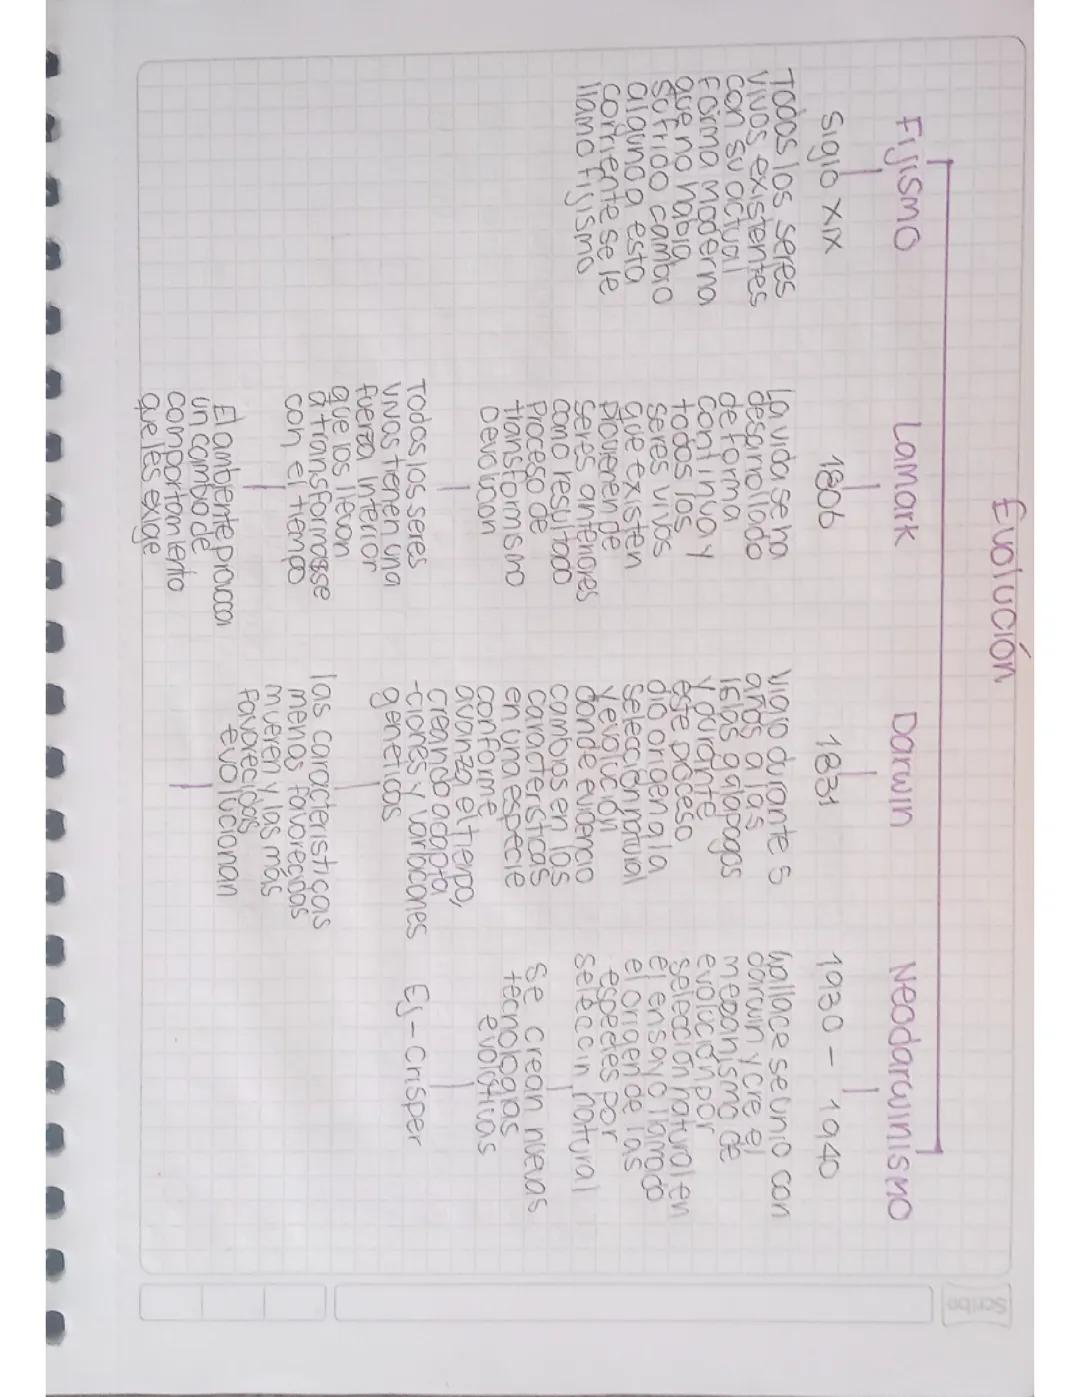 Evolución
Fijismo
Siglo XIX
Todos los seres
vivos existentes
con su actual
forma moderna
que no habia
sufrido cambio
alguno a esta
corriente se le
llamo fijismo
Lamark
1806
La vida se ha
desarrollado
de forma
continua y
todos los
seres vivos
que existen
provienen de
seres anteriores
como resultado
Proceso de
transformismo
Devolucion
Todos los seres
vivos tienen una
fuerza interior
que los llevan
a transformasse
con el tiempo
El ambiente provoca
un cambio de
comportamiento
que les exige
Darwin
1831
Viajo durante 5
años a las
islas galapagos
y durante
este proceso
dio origen a la
selección natural
y evolución
donde evidencio
cambios en las
caracteristicas
en una especie
conforme
avanza el tiempo,
creando adapta
-ciones y variaciones
geneticas
las caracteristicas
menos favorecidas
mueren y las más
favorecidas
evolucionan
Neodarwinismo
1930 - 1940
Wallace se unio con
darwin y cre el
mecanismo de
evolución por
selección natural en
el ensayo llamado
el origen de las
especies por
selección natural
Se crean nuevas
tecnologias
evolotivas
Ej - Crisper
Scribe